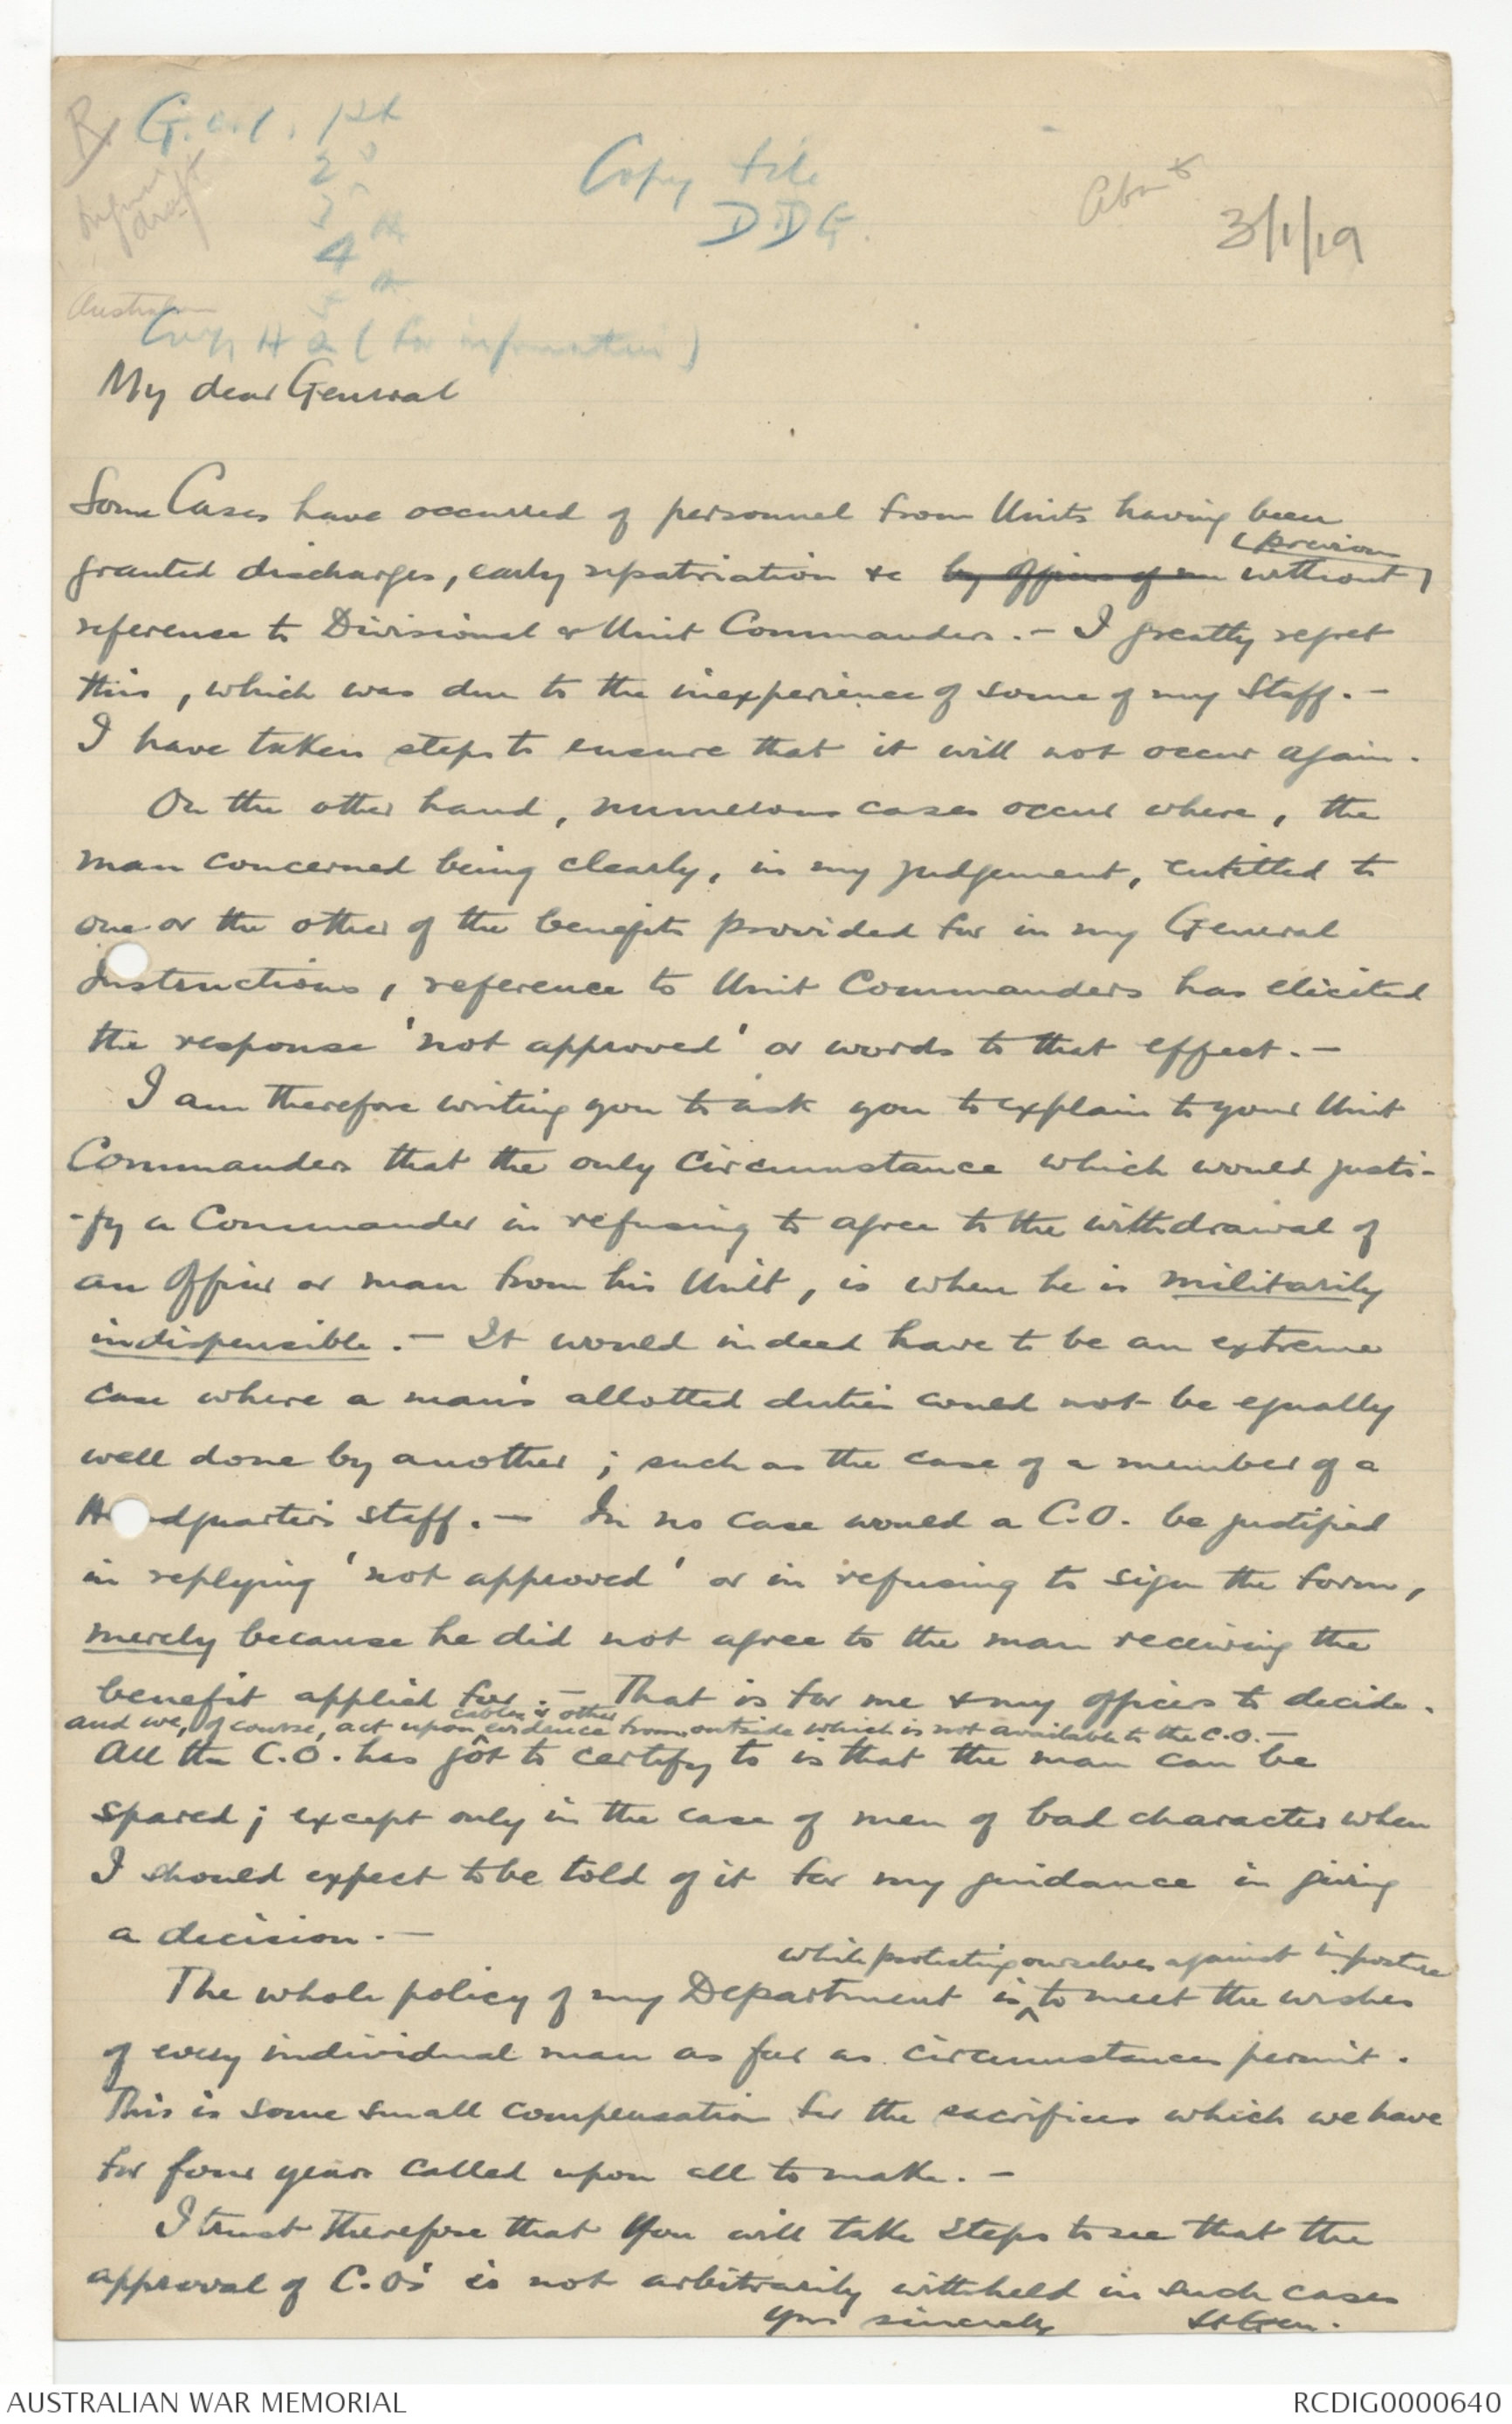 G.O.C. 1st
2d
3
4th
5th
Copy file
DDG.
3/1/19
Australian
Corps HQ (for information)
My dear General
Some Cases have occurred of personnel from Units having been
previous
granted discharges, early repatriation &c by Officers of without
reference to Divisional & Unit Commanders. - I greatly regret
this, which was due to the inexperience of some of my Staff. -
I have taken steps to ensure that it will not occur again.
On the other hand, numerous cases occur where, the
man concerned being clearly, in my judgement, entitled to
one or the other of the benefits provided for in my General
Instructions, reference to Unit Commanders has elicited
the response 'not approved' or words to that effect. -
I am therefore writing you to ask you to explain to your Unit
Commanders that the only circumstance which would justi-
-fy a Commander in refusing to agree to the withdrawal of
an Officer or man from his Unit, is when he is militarily
indispensible. - It would indeed have to be an extreme
case where a man's allotted duties could not be equally
well done by another; such as the case of a member of a
Headquarters staff. - In no case would a C.O. be justified
in replying 'not approved' or in refusing to sign the form,
merely because he did not agree to the man receiving the
benefit applied for. - That is for me & my officers to decide.
cables & other
and we, of course, act upon evidence from outside which is not available to the C.O. -
All the C.O. has got to certify to is that the man can be
spared; except only in the case of men of bad character when
I should expect to be told of it for my guidance in giving
a decision. -
while protecting ourselves against imposture
The whole policy of my Department is to meet the wishes
of every individual man as far as circumstances permit.
This is some small compensation for the sacrifices which we have
for four years called upon all to make. -
I trust therefore that you will take steps to see that the
approval of C.O's is not arbitrarily withheld in such cases
Yrs sincerely Lt Gen.
AUSTRALIAN WAR MEMORIAL
RCDIG0000640